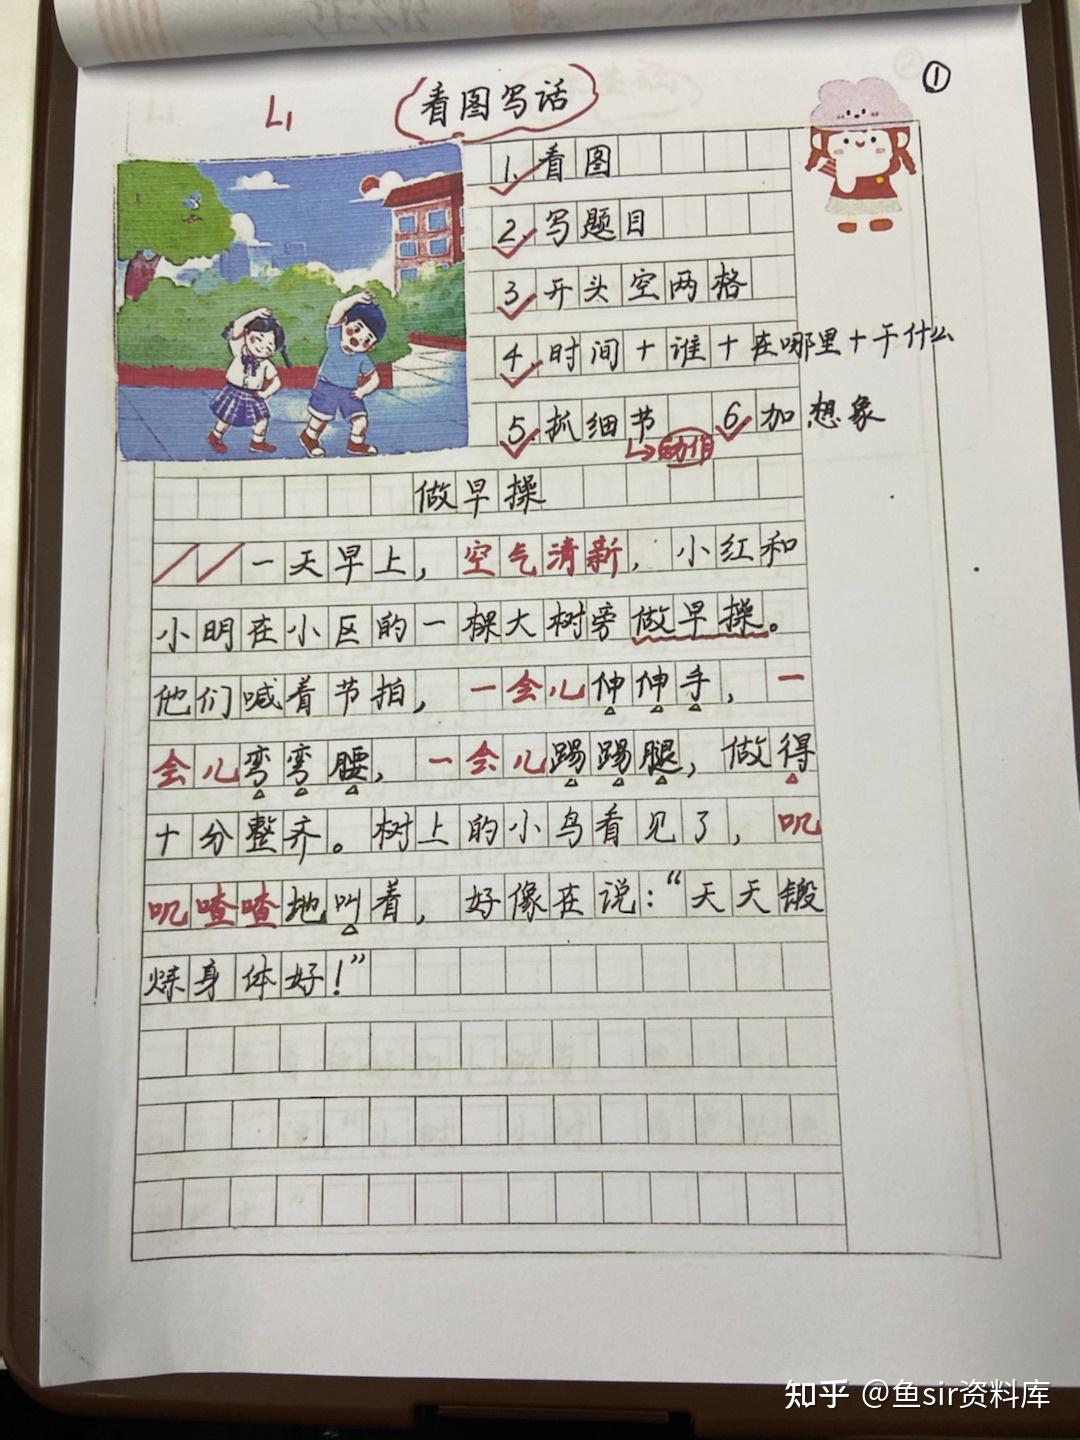 L1
看图写话
①
1.看图
2.写题目
3.开头空两格
4.时间+谁+在哪里+干什么
5.抓细节 6.加想象
↳动作
做早操
一天早上，空气清新，小红和
小明在小区的一棵大树旁做早操。
他们喊着节拍，一会儿伸伸手，一
会儿弯弯腰，一会儿踢踢腿，做得
十分整齐。树上的小鸟看见了，叽
叽喳喳地叫着，好像在说：“天天锻
炼身体好！”
知乎 @鱼sir资料库